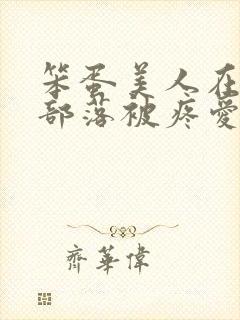 笨蛋美人在
部落被疼愛
齊華偉